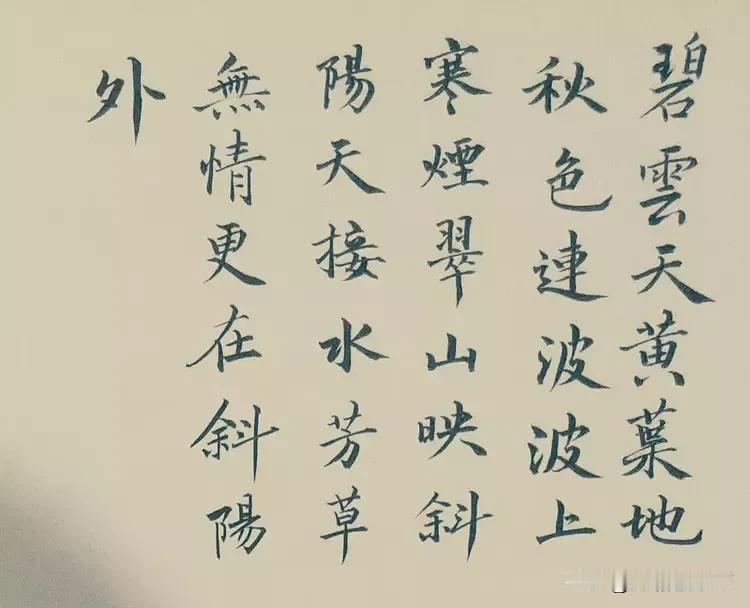 碧雲天黄葉地
秋色連波波上
寒煙翠山映斜
陽天接水芳草
無情更在斜陽
外